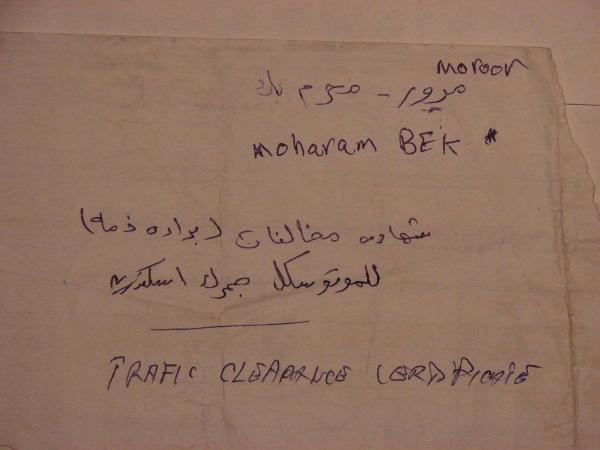 moroor
مرور - محرم بك
moharam BEK *
شهاده مخالفات (براده ذمه)
للموتوسكل جمرك اسكندريه
TRAFIC CLEARANCE CERTIFICATE